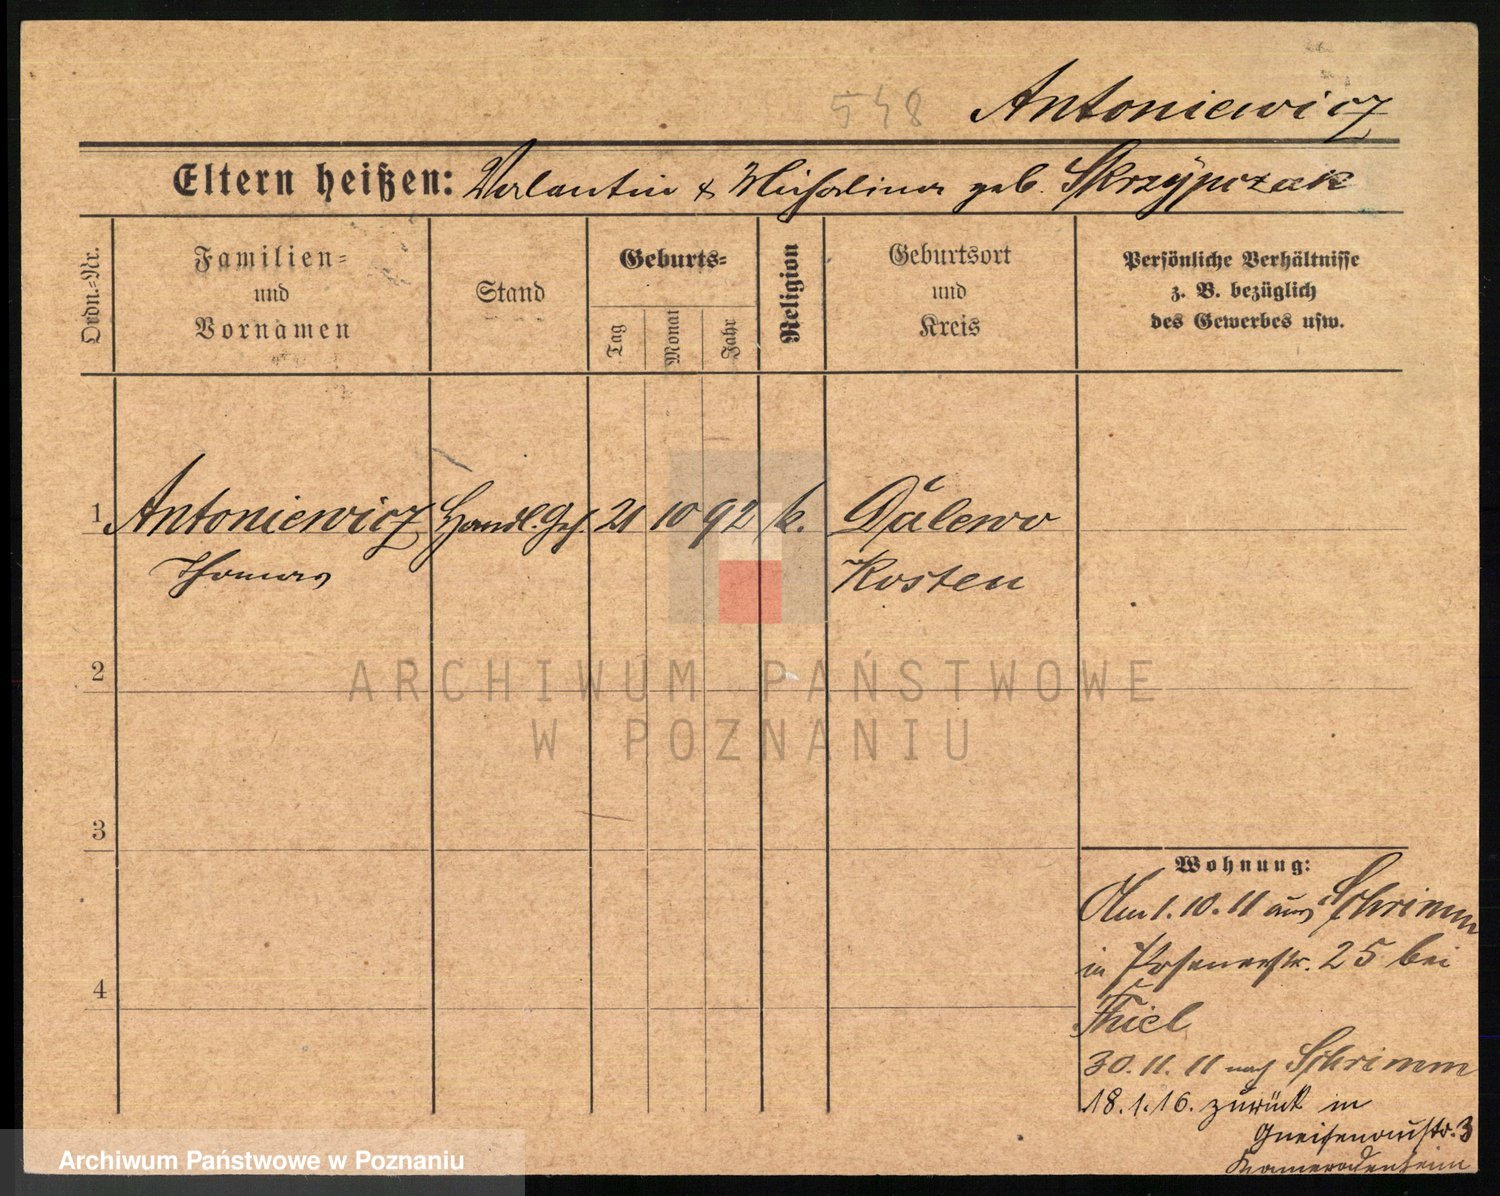 548 Antoniewicz
Eltern heißen: Valentin & Michalina geb. Skrzÿpczak
Ordn.-Nr.
Familien-
und
Vornamen
Stand
Geburts-
Tag
Monat
Jahr
Religion
Geburtsort
und
Kreis
Persönliche Verhältnisse
z. B. bezüglich
des Gewerbes usw.
1 Antoniewicz Handl. Geh. 21 10 92 k. Dalewo
Thomas Kosten
2
3
4
Wohnung:
Am 1. 10. 11 aus Schrimm
in Posenerstr. 25 bei
Thiel
30. 11. 11 nach Schrimm
18. 1. 16. zurück in
Gneisenaustr. 3
Kameradenheim
ARCHIWUM PAŃSTWOWE
W POZNANIU
Archiwum Państwowe w Poznaniu